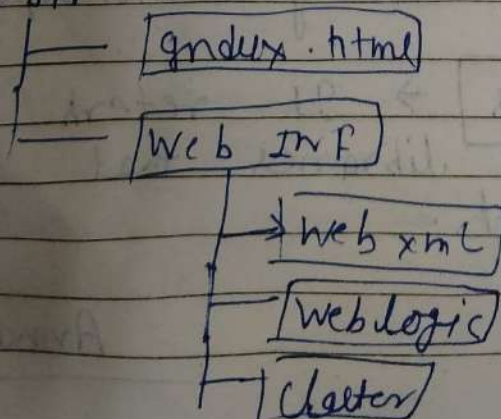 gndex.html
Web INF
web xml
Weblogic